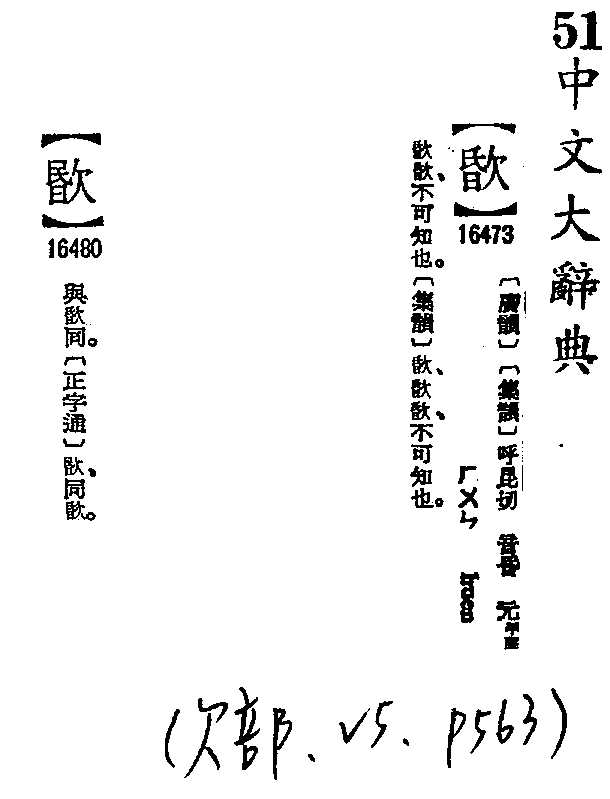 51
中文大辭典
【】
16473
〔廣韻〕〔集韻〕呼昆切 音昏 元平聲
ㄏㄨㄣ
、不可知也。〔集韻〕、、不可知也。
【】
16480
與同。〔正字通〕、同。
(欠部、V5、P563)